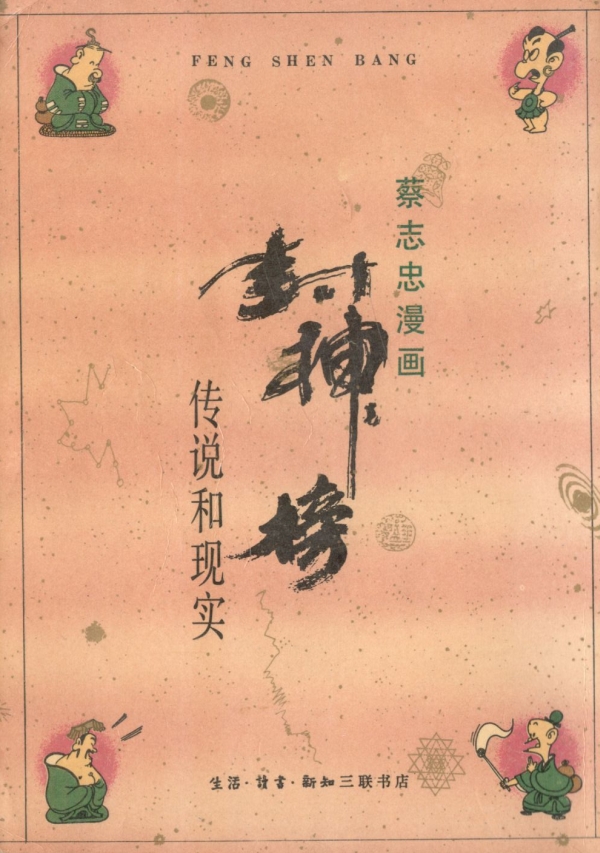 FENG SHEN BANG
蔡志忠漫画
封神榜
传说和现实
生活·读书·新知三联书店